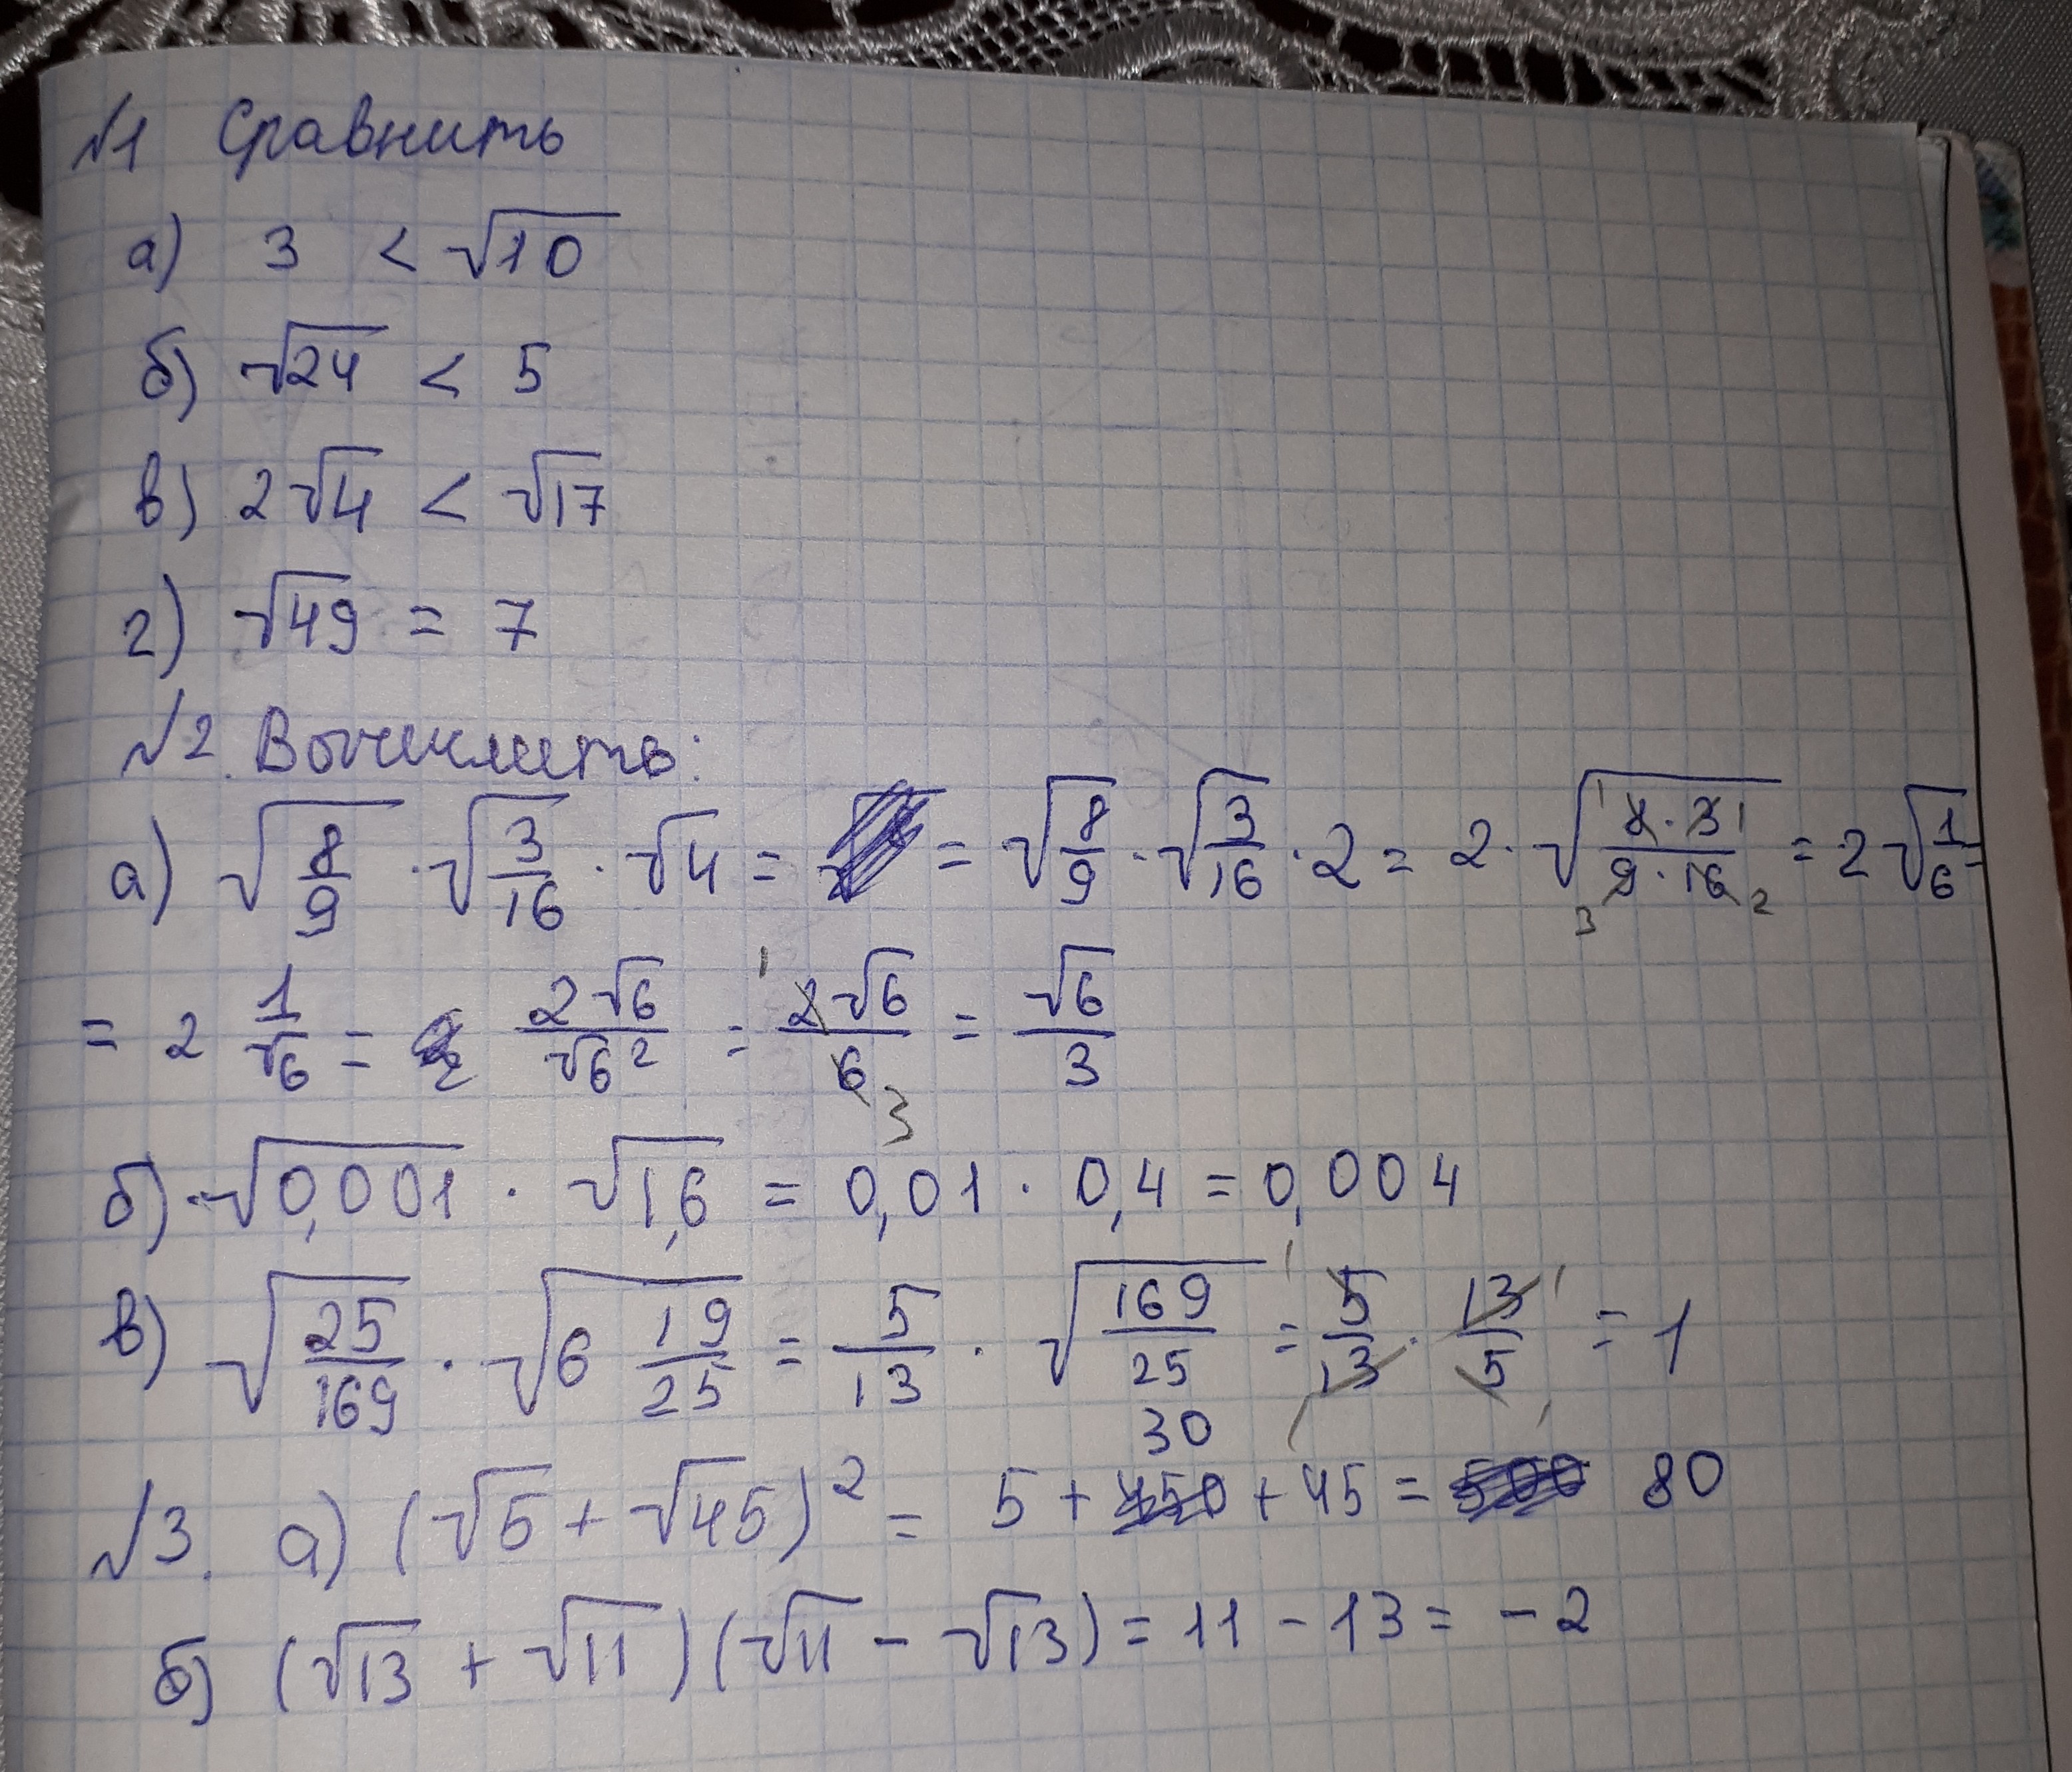 №1 Сравнить
а) 3 < √10
б) √24 < 5
в) 2√4 < √17
г) √49 = 7
№2. Вычислить:
а) √(8/9) · √(3/16) · √4 = = √(8/9) · √(3/16) · 2 = 2 · √((8·3)/(9·16)) 1 1 3 2 = 2√(1/6) =
= 2 1/√6 = 2√6/√6² = 2√6/6 1 3 = √6/3
б) √0,001 · √1,6 = 0,01 · 0,4 = 0,004
в) √(25/169) · √(6 19/25) = 5/13 · √(169/25) = 5/13 · 13/5 1 1 1 1 = 1
№3. а) (√5 + √45)² = 5 + 30 + 45 = 80
б) (√13 + √11)(√11 − √13) = 11 − 13 = −2